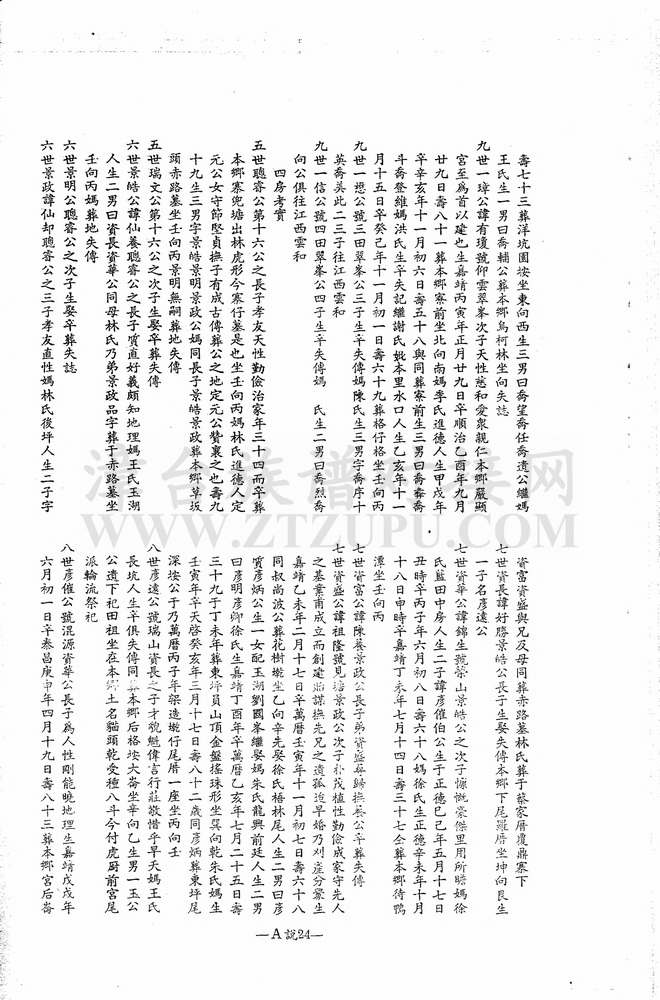 壽七十三葬洋坑園垵坐東向西生三男曰喬望喬任喬遺公繼媽
王氏生一男曰喬輔公葬本鄉烏柯林坐向失誌
九世一璋公諱有瓊號仰雲翠峯次子天性慈和愛衆親仁本鄉嚴顯
宮至爲首以建也生嘉靖丙寅年正月廿九日卒順治乙酉年九月
廿九日壽八十一葬本鄉寮前坐北向南媽李氏進德人生甲戌年
卒辛亥年十一月初六日壽五十八與同葬寮前生三男曰喬泰喬
斗喬登維媽洪氏生卒失記繼謝氏妣本里水口人生乙亥年十一
月十五日卒癸己年十一月初一日壽六十九葬格仔格坐壬向丙
九世一愷公號三田翠峯公三子生卒失傳媽陳氏生三男字喬序十
英喬美此二三子往江西雲和
九世一信公號四田翠峯公四子生卒失傳媽　氏生二男曰喬烈喬
向公俱往江西雲和
四房考實
五世聰睿公第十六公之長子孝友天性勤儉治家年三十四而卒葬
本鄉寨兜塘出林虎形今寨仔墓是也坐壬向丙媽林氏進德人定
元公女守節堅貞撫子有成古傳鄉公之地定元公贊襄之也壽九
十九生三男字景皓景明景政公媽同長子景皓景政葬本鄉草坂
頭赤路墓坐壬向丙景明無嗣葬地失傳
五世瑞文公第十六公之次子生娶卒葬失傳
六世景皓公諱仙養聰睿公之長子質直好義頗知地理媽王氏玉湖
人生二男曰資長資華公同母林氏乃弟景政品字葬于赤路墓坐
壬向丙媽葬地失傳
六世景明公聰睿公之次子生娶卒葬失誌
六世景政諱仙却聰睿公之三子孝友直性媽林氏後坪人生二子字
資富資盛與兄及母同葬赤路墓林氏葬于蔡家厝復鼎寨下
七世資長諱好勝景皓公長子生娶失傳本鄉下尾羅厝坐坤向艮生
一子名彥遠公
七世資華公諱錦生號榮山景皓公之次子慷慨豪傑里用所瞻媽徐
氏藍田中房人生二子諱彥催伯公生于正德巳己年五月十七日
丑時卒丙子年六月初八日壽六十八媽徐氏生正德辛未年十月
十八日申時卒嘉靖丁未年七月十四日壽三十七仝葬本鄉待鴨
潭坐壬向丙
七世資富公諱陳養景政公長子弟資盛葬歸撫養公卒葬失傳
七世資盛公諱祖隆號見塘景政公次子朴茂植性勤儉成家守先人
之基業甫成立而創建貽謀撫先兄之遺孤迨早婚乃刈崖分爨生
嘉靖乙未年二月十七日卒萬曆壬寅年十一月初七日壽六十八
同叔尚波公葬花樹塂坐乙向辛先娶徐氏梧林尾人生二男曰彥
質彥炳公生一女配玉湖劉國峯繼娶媽朱氏龍興前廷人生二男
曰彥明彥卿徐氏生嘉靖丁酉年卒萬曆乙亥年七月二十五日壽
三十九于丁未年葬東坪員山頂金盤搖珠形坐巽向乾朱氏媽生
壬寅年卒天啓癸亥年三月十七日壽八十二歲同彥炳葬東坪尾
深垵公于乃萬曆丙子年架造塂仔尾厝一座坐丙向壬
八世彥遠公號瑞山資長之子才貌魁偉言行莊敬惜乎早夭媽王氏
長坑人生卒俱失傳同葬本鄉后格垵大崙坐辛向乙生男一玉公
公遺下祀田租坐在本鄉土名貓頭乾受種八斗今付虎厨前宮尾
派輪流祭祀
八世彥催公號混源資華公長子爲人性剛能曉地理生嘉靖戊戌年
六月初一日卒泰昌庚申年四月十九日壽八十三葬本鄉宮后崙
—A説24—
法台族譜對接网
WWW.ZTZUPU.COM